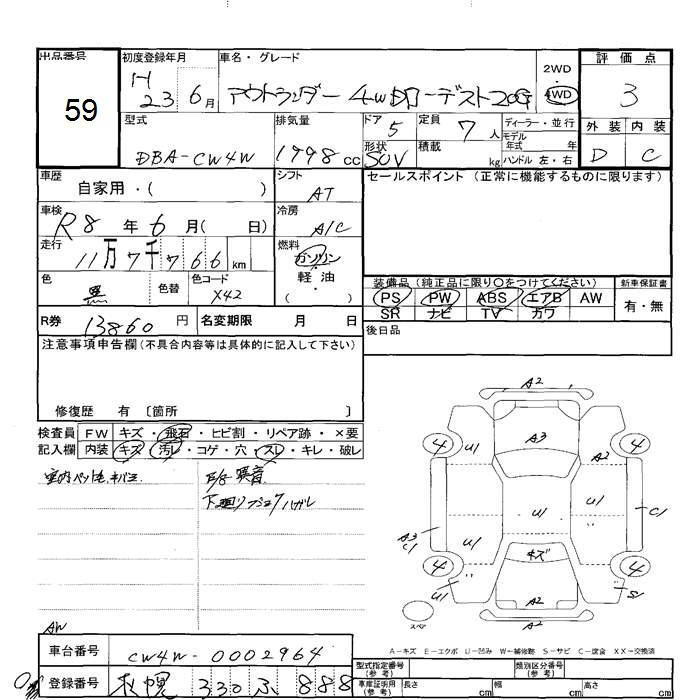 出品番号 初度登録年月 車名・グレード 2WD 評価点
59 H 23 6月 アウトランダー 4WD ローデスト20G 4WD 3
型式 排気量 ドア 5 定員 7人 ディーラー・並行 外装 内装
DBA-CW4W 1998cc 形状 SUV 積載 kg モデル年式 年 ハンドル 左・右 D C
車歴 自家用・( ) シフト AT セールスポイント (正常に機能するものに限ります)
車検 R8年6月( 日) 冷房 A/C
走行 11万7千766km 燃料 ガソリン 軽・油 ( )
色 黒 色替 色コード X42 装備品 (純正品に限り○をつけてください) 新車保証書
PS PW ABS エアB AW 有・無
SR ナビ TV カワ
R券 13860円 名変期限 月 日 後日品
注意事項申告欄(不具合内容等は具体的に記入して下さい)
修復歴 有 〔箇所 〕
検査員 FW キズ・飛石・ヒビ割・リペア跡・×要
記入欄 内装 キズ・汚レ・コゲ・穴・スレ・キレ・破レ
E/G 異音
下廻り ハガレ
A2
A3
4 U1 A2 4
U1 U1 U1 C1
A3 C1
キズ
4 4
U1 A2 S
A2
スペア
AW
A−キズ E−エクボ U−凹み W−補修跡 S−サビ C−腐食 XX−交換済
車台番号 CW4W-0002964 型式指定番号 (参考) 類別区分番号 (参考)
登録番号 札幌 330 ふ 888 車庫証明用 (参考) 長さ cm 幅 cm 高さ cm